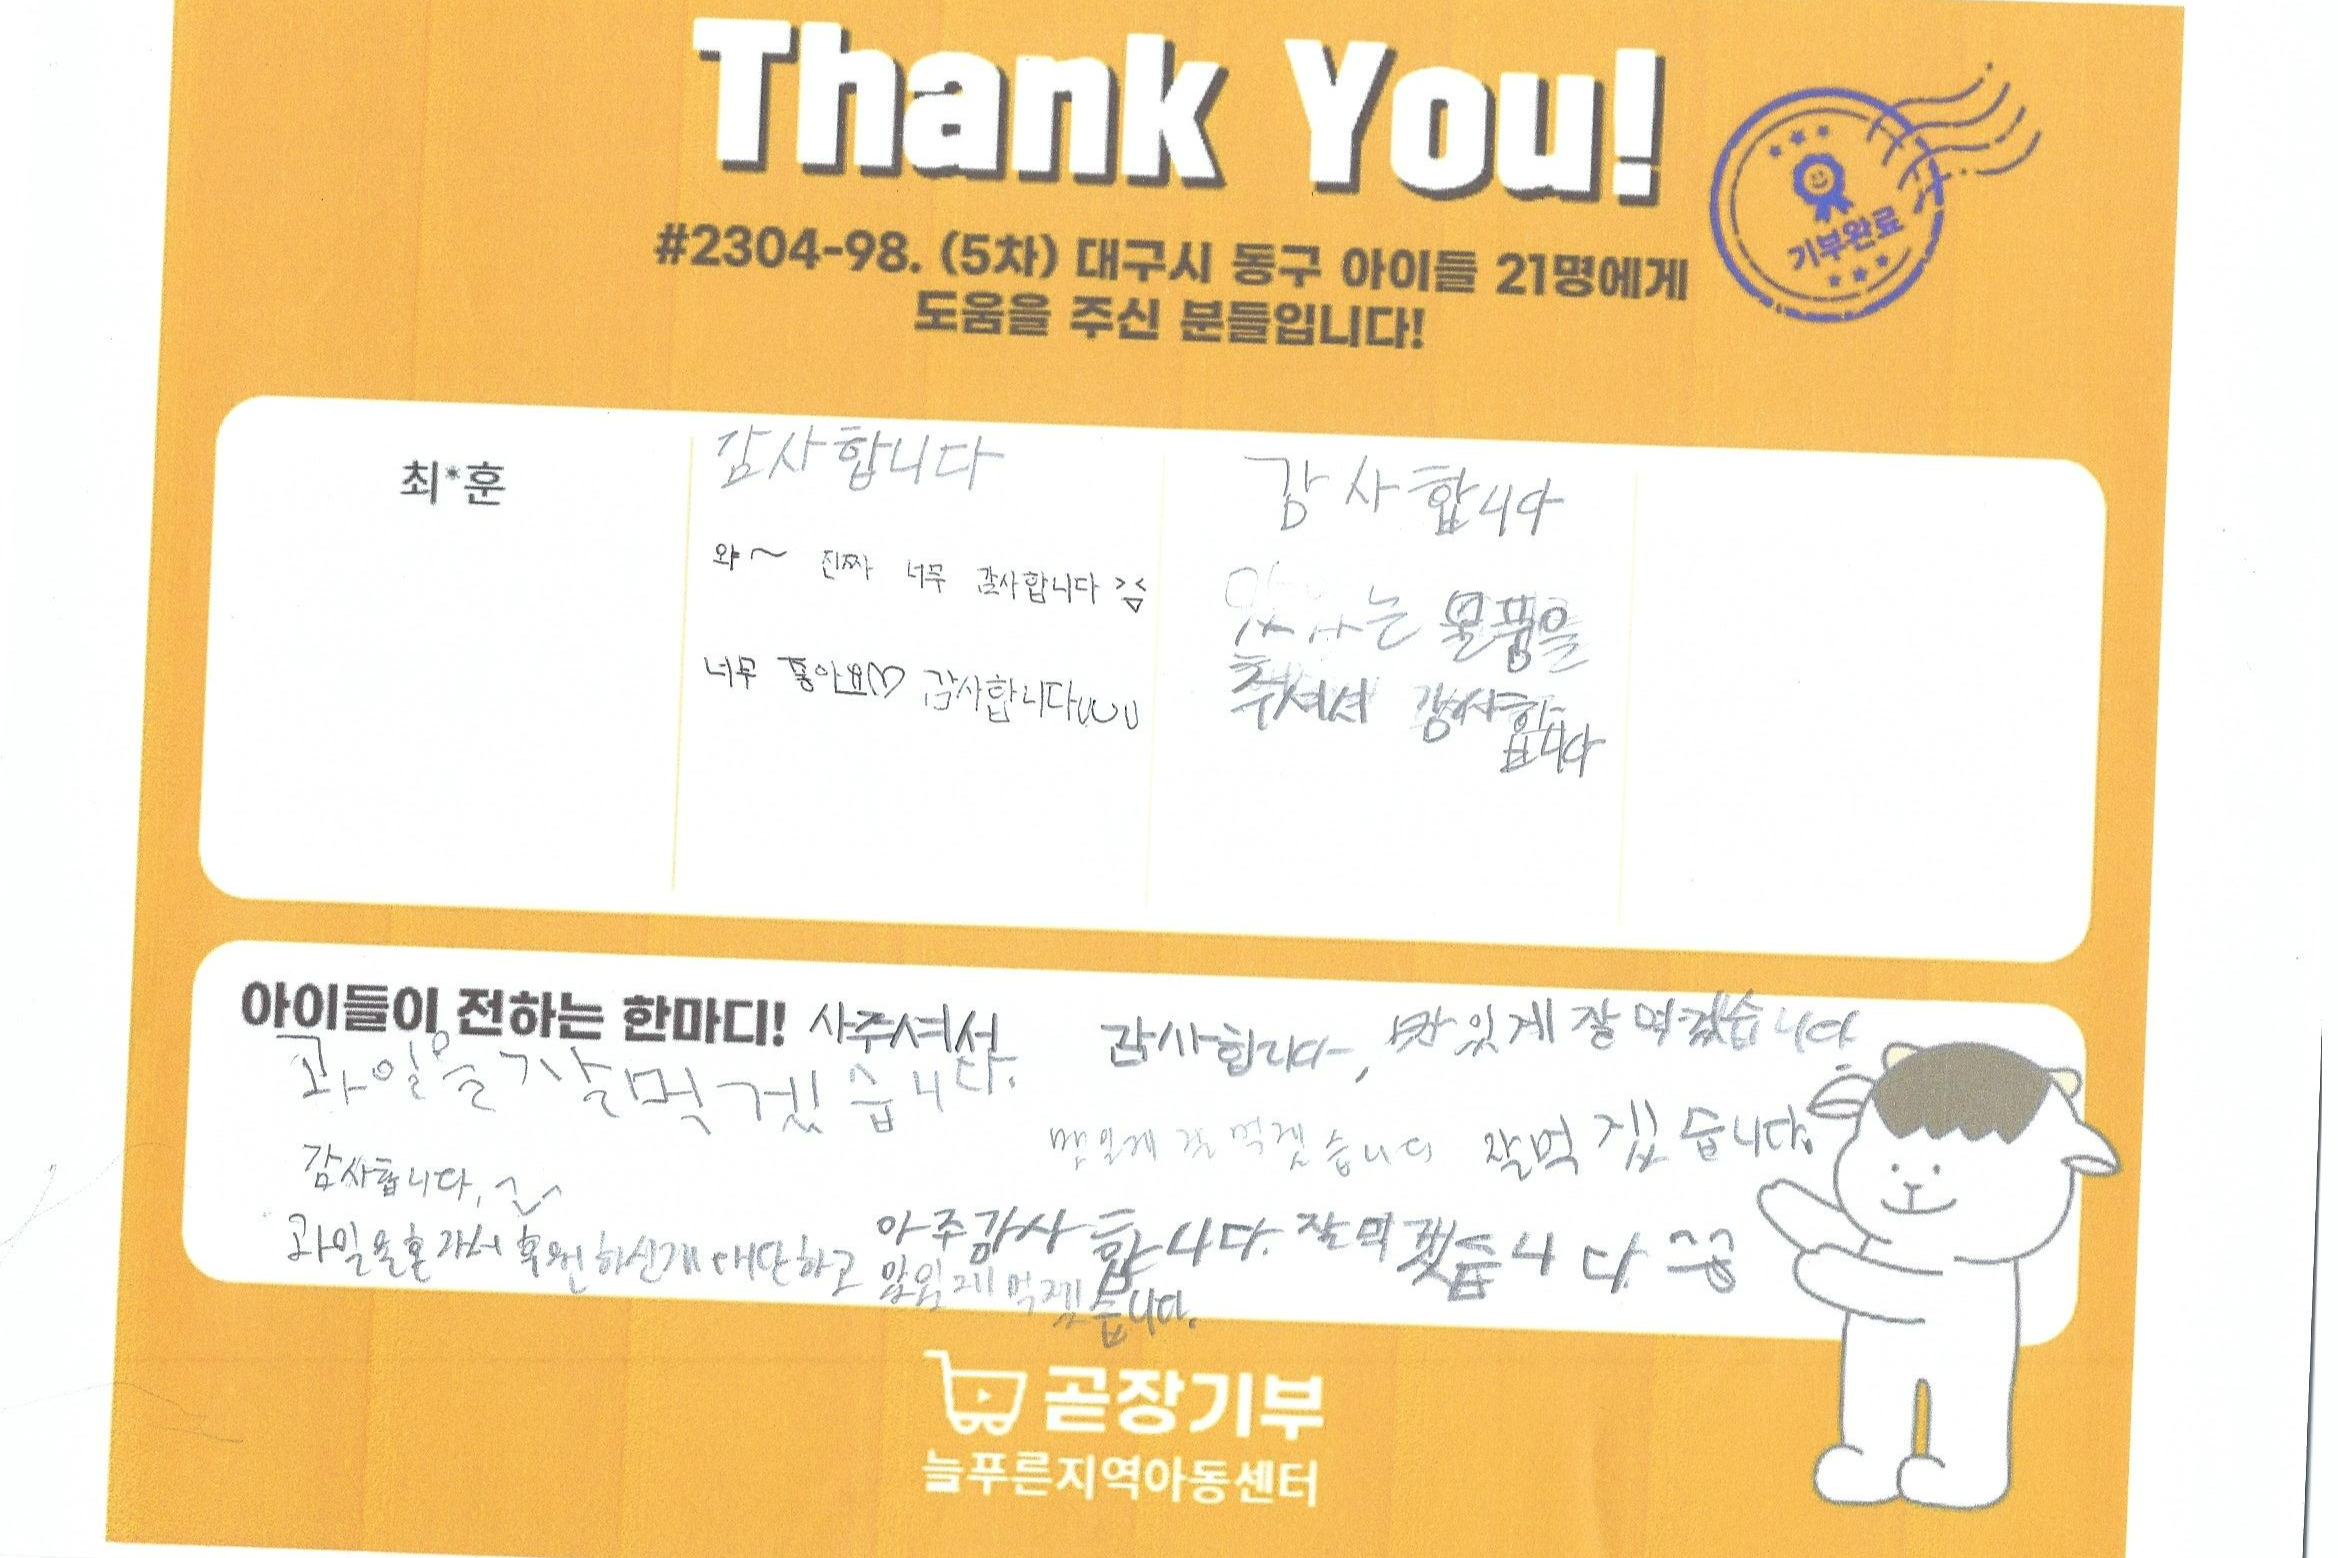 Thank You!
기부완료
#2304-98. (5차) 대구시 동구 아이들 21명에게
도움을 주신 분들입니다!
최*훈
감사합니다
와~ 진짜 너무 감사합니다
너무 좋아요♡ 감사합니다
감사합니다
는 물품을
주셔셔 감사합
니다
아이들이 전하는 한마디!
사주셔서 감사합니다, 맛있게 잘 먹겠습니다
과일을 잘 먹겠습니다.
잘먹 겠습니다.
감사합니다. ^^
아주감사 합니다. 잘먹겠습니다
과일을 후원하신게 대단하고
먹겠습니다.
곧장기부
늘푸른지역아동센터